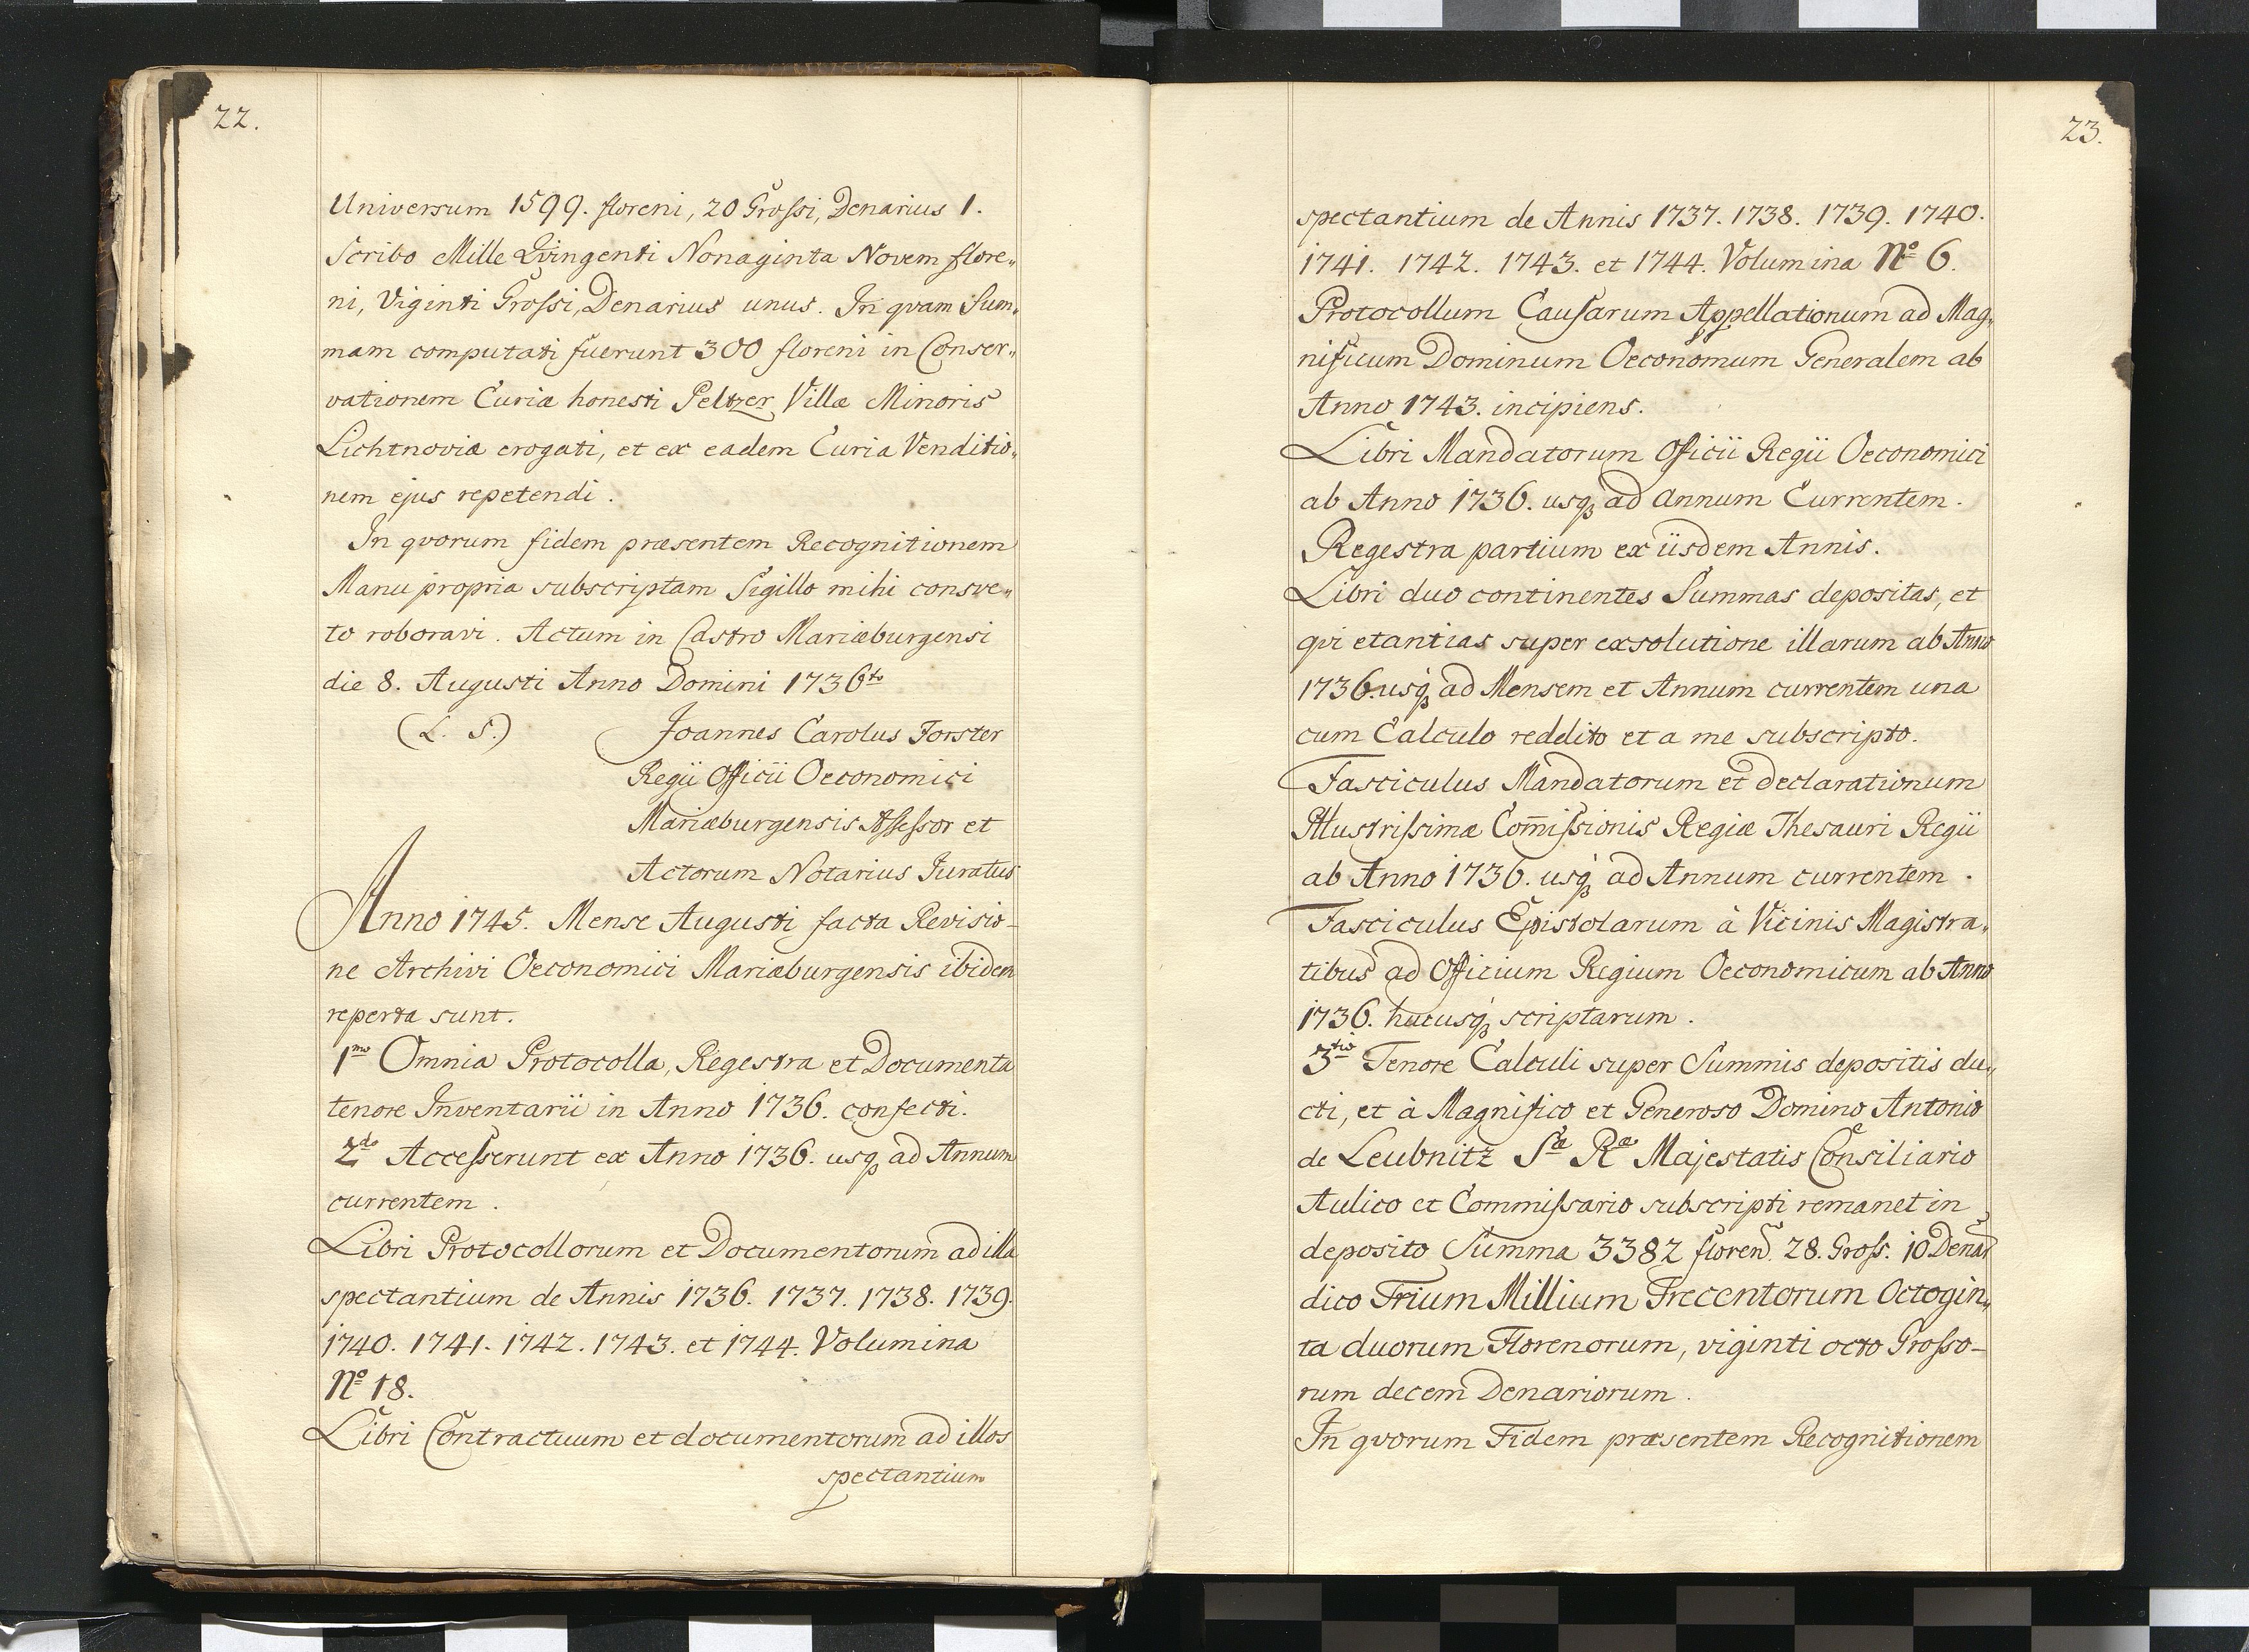 22.
Universum 1599. floreni, 20 Grossi, Denarius 1.
Scribo Mille Qvingenti Nonaginta Novem flore„
ni, Viginti Grossi, Denarius unus. In qvam Sum„
mam computati fuerunt 300 floreni in Conser„
vationem Curiæ honesti Peltzer Villæ Minoris
Lichtnoviæ erogati, et ex eadem Curia Venditio„
nem ejus repetendi.
In qvorum fidem præsentem Recognitionem
Manu propria subscriptam Sigillo mihi consve„
to roboravi. Actum in Castro Mariæburgensi
die 8. Augusti Anno Domini 1736to
(L. S.) Joannes Carolus Forster
Regii Officii Oeconomici
Mariæburgensis Assessor et
Actorum Notarius Juratus
Anno 1745. Mense Augusti facta Revisio-
ne Archivi Oeconomici Mariæburgensis ibidem
reperta sunt.
1mo Omnia Protocolla, Regestra et Documenta
tenore Inventarii in Anno 1736. confecti.
2do Accesserunt ex Anno 1736. usq, ad Annum
currentem.
Libri Protocollorum et Documentorum ad illa
spectantium de Annis 1736. 1737. 1738. 1739.
1740. 1741. 1742. 1743. et 1744. Volumina
No 18.
Libri Contractuum et documentorum ad illos
spectantium
23.
spectantium de Annis 1737. 1738. 1739. 1740.
1741. 1742. 1743. et 1744. Volumina No 6.
Protocollum Causarum Appellationum ad Mag„
nificum Dominum Oeconomum Generalem ab
Anno 1743. incipiens.
Libri Mandatorum Officii Regii Oeconomici
ab Anno 1736. usq, ad annum Currentem.
Regestra partium ex iisdem Annis.
Libri duo continentes Summas depositas, et
qvietantias super exsolutione illarum ab Anno
1736. usq, ad Mensem et Annum currentem una
cum Calculo reddito et a me subscripto.
Fasciculus Mandatorum et declarationum
Illustrissimæ Com̃issionis Regiæ Thesauri Regii
ab Anno 1736. usq, ad Annum currentem.
Fasciculus Epistolarum à Vicinis Magistra„
tibus ad Officium Regium Oeconomicum ab Anno
1736. hucusq, scriptarum.
3tio Tenore Calculi super Summis depositis du„
cti, et à Magnifico et Generoso Domino Antonio
de Leubnitz Sæ Ræ Majestatis Consiliario
Aulico et Commissario subscripti remanet in
deposito Summa 3382 floren. 28. Gross. 10 Denar
dico Trium Millium Trecentorum Octogin„
ta duorum Florenorum, viginti octo Grosso-
rum decem Denariorum.
In qvorum Fidem præsentem Recognitionem